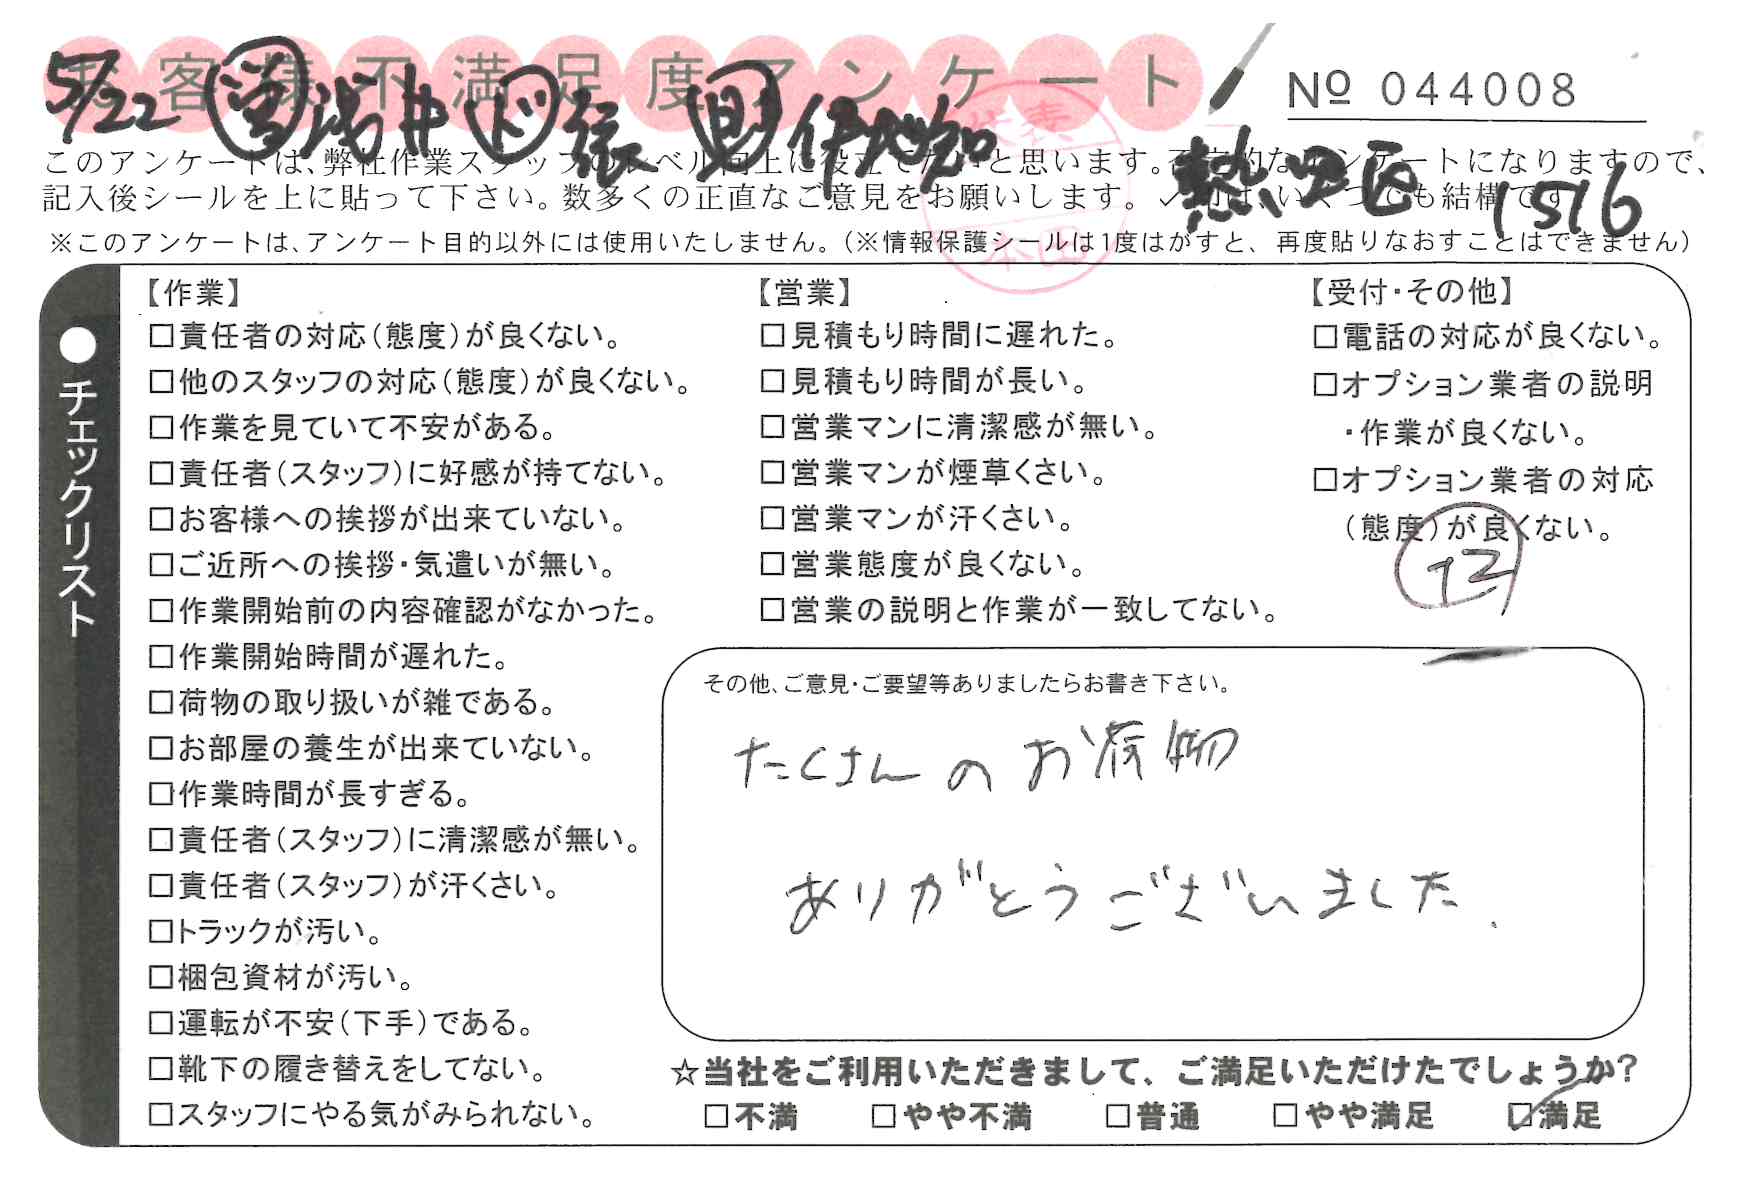 お客様不満足度アンケート
№ 044008
5/22 営 浅井 ド 張 助 伊地知
熱田区 1516
代表
本田
このアンケートは、弊社作業スタッフのレベル向上に役立てたいと思います。否定的なアンケートになりますので、
記入後シールを上に貼って下さい。数多くの正直なご意見をお願いします。✓印は、いくつでも結構です。
※このアンケートは、アンケート目的以外には使用いたしません。(※情報保護シールは1度はがすと、再度貼りなおすことはできません)
●チェックリスト
【作業】
□責任者の対応(態度)が良くない。
□他のスタッフの対応(態度)が良くない。
□作業を見ていて不安がある。
□責任者(スタッフ)に好感が持てない。
□お客様への挨拶が出来ていない。
□ご近所への挨拶・気遣いが無い。
□作業開始前の内容確認がなかった。
□作業開始時間が遅れた。
□荷物の取り扱いが雑である。
□お部屋の養生が出来ていない。
□作業時間が長すぎる。
□責任者(スタッフ)に清潔感が無い。
□責任者(スタッフ)が汗くさい。
□トラックが汚い。
□梱包資材が汚い。
□運転が不安(下手)である。
□靴下の履き替えをしてない。
□スタッフにやる気がみられない。
【営業】
□見積もり時間に遅れた。
□見積もり時間が長い。
□営業マンに清潔感が無い。
□営業マンが煙草くさい。
□営業マンが汗くさい。
□営業態度が良くない。
□営業の説明と作業が一致してない。
【受付・その他】
□電話の対応が良くない。
□オプション業者の説明
・作業が良くない。
□オプション業者の対応
(態度)が良くない。
その他、ご意見・ご要望等ありましたらお書き下さい。
たくさんのお荷物
ありがとうございました.
☆当社をご利用いただきまして、ご満足いただけたでしょうか?
□不満 □やや不満 □普通 □やや満足 ☑満足